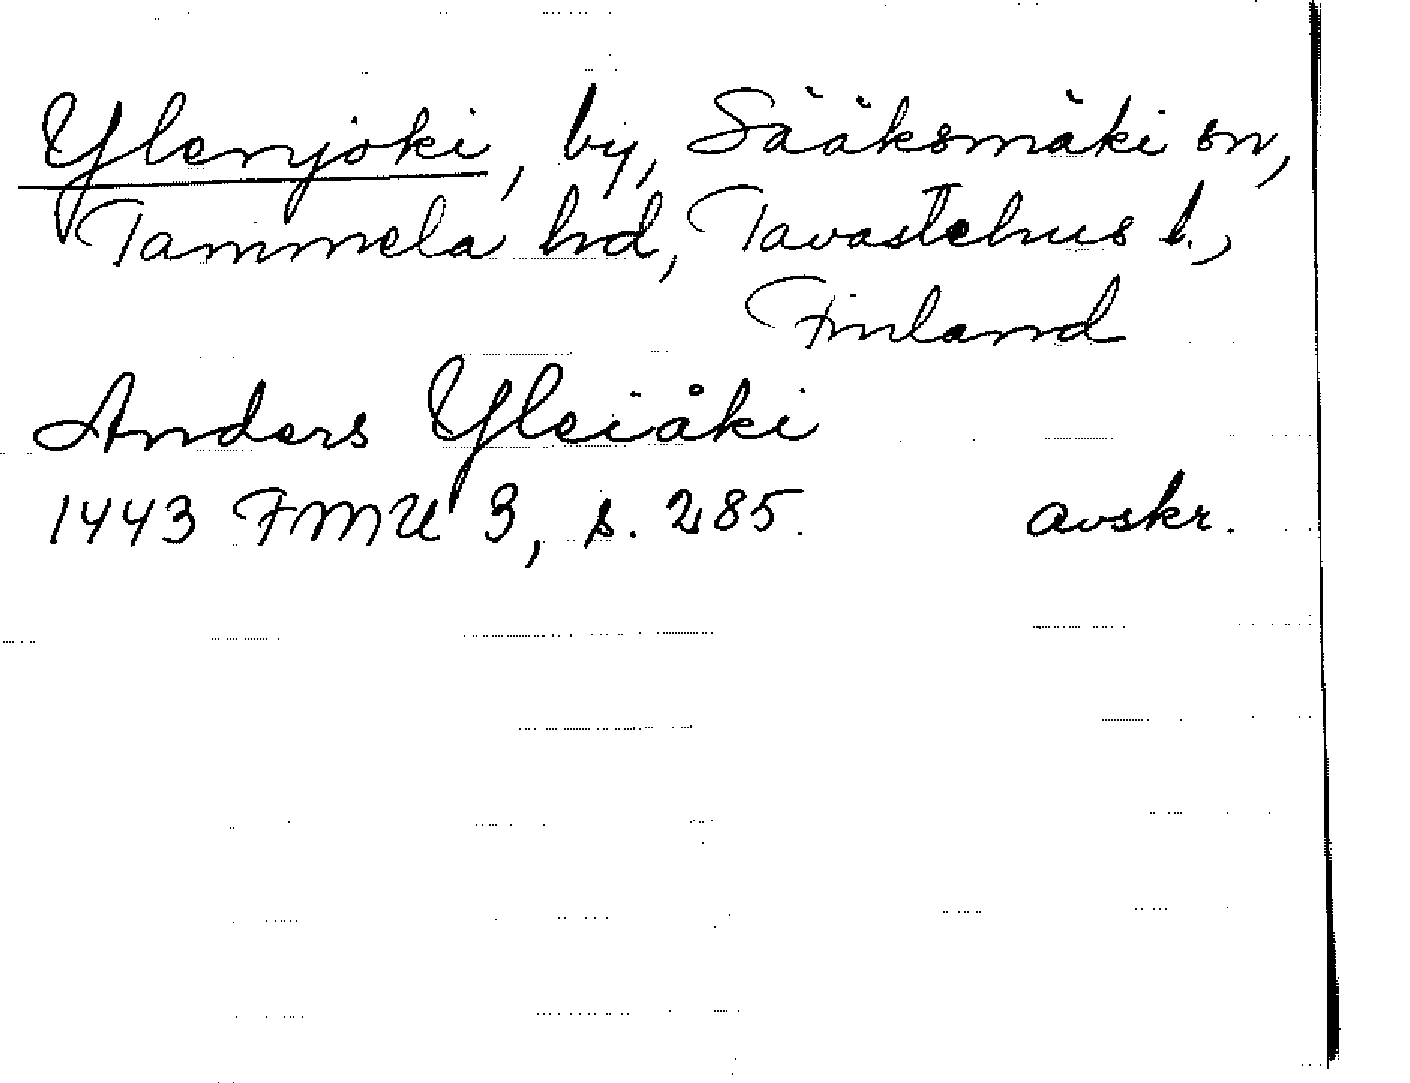 Ylenjoki, by, Sääksmäki sn,
Tammela hd, Tavastehus l.,
Finland
Anders Yleiåki
1443 FMU 3, s. 285. avskr.